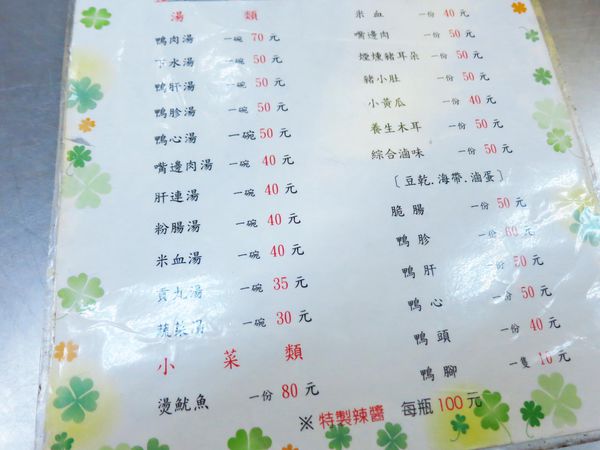 湯 類
鴨肉湯 一碗 70 元
下水湯 一碗 50 元
鴨肝湯 一碗 50 元
鴨胗湯 一碗 50 元
鴨心湯 一碗 50 元
嘴邊肉湯 一碗 40 元
肝連湯 一碗 40 元
粉腸湯 一碗 40 元
米血湯 一碗 40 元
貢丸湯 一碗 35 元
蔬菜湯 一碗 30 元
小 菜 類
燙魷魚 一份 80 元
米血 一份 40 元
嘴邊肉 一份 50 元
煙燻豬耳朵 一份 50 元
豬小肚 一份 50 元
小黃瓜 一份 40 元
養生木耳 一份 50 元
綜合滷味 一份 50 元
〔豆乾.海帶.滷蛋〕
脆腸 一份 50 元
鴨胗 一份 60 元
鴨肝 一份 50 元
鴨心 一份 50 元
鴨頭 一份 40 元
鴨腳 一隻 10 元
※ 特製辣醬 每瓶 100 元